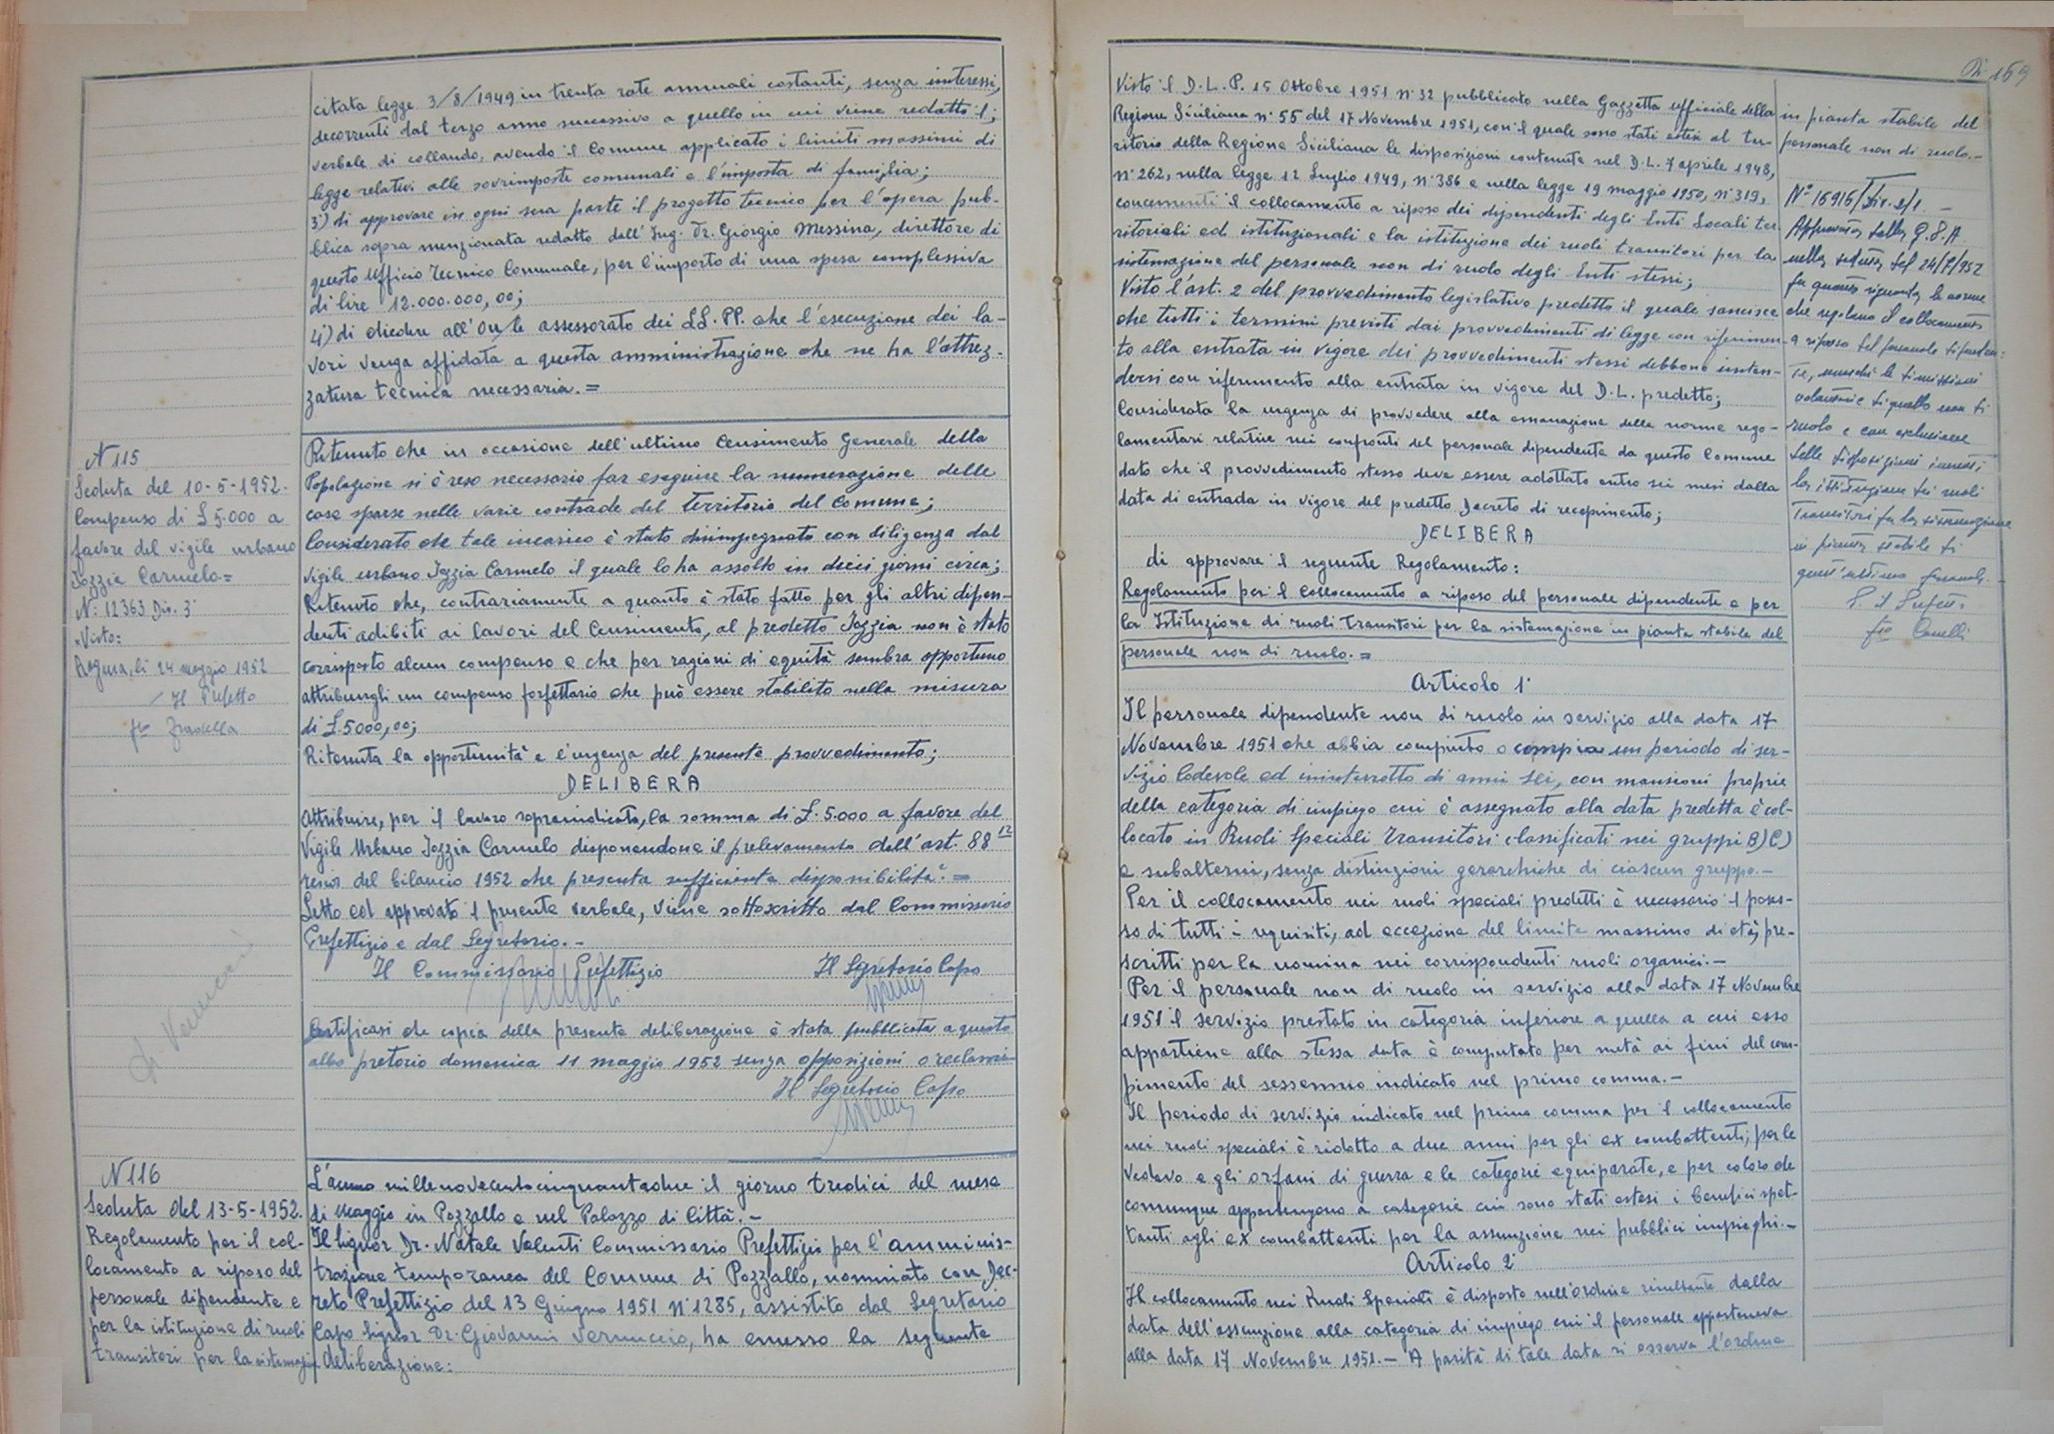 citata legge 3/8/1949 in trenta rate annuali costanti, senza interessi,
decorrenti dal terzo anno successivo a quello in cui viene redatto il;
verbale di collaudo, avendo il Comune applicato i limiti massimi di
legge relativi alle sovrimposte comunali e l'imposta di famiglia;
3°) di approvare in ogni sua parte il progetto tecnico per l'opera pub-
blica sopra menzionata redatto dall'Ing. Dr. Giorgio Messina, direttore di
questo Ufficio Tecnico Comunale, per l'importo di una spesa complessiva
di lire 12.000.000,00;
4°) di chiedere all'On/le assessorato dei LL.PP. che l'esecuzione dei la-
vori venga affidata a questa amministrazione che ne ha l'attrez-
zatura tecnica necessaria.=
N 115
Seduta del 10-5-1952.
Compenso di £ 5.000 a
favore del vigile urbano
Iozzia Carmelo=
N: 12363 Div. 3ª
"Visto:
Ragusa, li 24 maggio 1952
Il Prefetto
Ritenuto che in occasione dell'ultimo Censimento Generale della
Popolazione si è reso necessario far eseguire la numerazione delle
case sparse nelle varie contrade del territorio del Comune;
Considerato che tale incarico è stato disimpegnato con diligenza dal
vigile urbano Iozzia Carmelo il quale lo ha assolto in dieci giorni circa;
Ritenuto che, contrariamente a quanto è stato fatto per gli altri dipen-
denti adibiti ai lavori del Censimento, al predetto Iozzia non è stato
corrisposto alcun compenso e che per ragioni di equità sembra opportuno
attribuirgli un compenso forfettario che può essere stabilito nella misura
di £.5000,00;
Ritenuta la opportunità e l'urgenza del presente provvedimento;
DELIBERA
Attribuire, per il lavoro sopraindicato, la somma di £. 5.000 a favore del
Vigile Urbano Iozzia Carmelo disponendone il prelevamento dell'art. 88
del bilancio 1952 che presenta sufficiente disponibilità.=
Letto ed approvato il presente verbale, viene sottoscritto dal Commissario
Prefettizio e dal Segretario.-
Il Commissario Prefettizio Il Segretario Capo
Certificasi che copia della presente deliberazione è stata pubblicata a questo
albo pretorio domenica 11 maggio 1952 senza opposizioni o reclami
Il Segretario Capo
N 116
Seduta del 13-5-1952.
Regolamento per il col-
locamento a riposo del
personale dipendente e
per la istituzione di ruoli
transitori per la sistemazione
L'anno millenovecentocinquantadue il giorno tredici del mese
di Maggio in Pozzallo e nel Palazzo di Città.-
Il Signor Dr. Natale Valenti Commissario Prefettizio per l'amminis-
trazione temporanea del Comune di Pozzallo, nominato con Dec-
reto Prefettizio del 13 Giugno 1951 N°1285, assistito dal Segretario
Capo Signor Dr. Giovanni Vernuccio, ha emesso la seguente
deliberazione:
169
Visto il D.L.P. 15 Ottobre 1951 n°32 pubblicato nella Gazzetta ufficiale della
Regione Siciliana n° 55 del 17 Novembre 1951, con il quale sono stati estesi al ter-
ritorio della Regione Siciliana le disposizioni contenute nel D.L. 7 aprile 1948,
n°262, nella legge 12 Luglio 1949, n°386 e nella legge 19 maggio 1950, n°319,
concernenti il collocamento a riposo dei dipendenti degli Enti Locali ter-
ritoriali ed istituzionali e la istituzione dei ruoli transitori per la
sistemazione del personale non di ruolo degli Enti stessi;
Visto l'art. 2 del provvedimento legislativo predetto il quale sancisce
che tutti i termini previsti dai provvedimenti di legge con riferimen-
to alla entrata in vigore dei provvedimenti stessi debbono inten-
dersi con riferimento alla entrata in vigore del D.L. predetto;
Considerata la urgenza di provvedere alla emanazione delle norme rego-
lamentari relative nei confronti del personale dipendente da questo Comune
dato che il provvedimento stesso deve essere adottato entro sei mesi dalla
data di entrada in vigore del predetto Decreto di recepimento;
DELIBERA
di approvare il seguente Regolamento:
Regolamento per il Collocamento a riposo del personale dipendente e per
la Istituzione di ruoli transitori per la sistemazione in pianta stabile del
personale non di ruolo.=
Articolo 1°
Il personale dipendente non di ruolo in servizio alla data 17
Novembre 1951 che abbia compiuto o compia un periodo di ser-
vizio lodevole ed ininterrotto di anni sei, con mansioni proprie
della categoria di impiego cui è assegnato alla data predetta è col-
locato in Ruoli Speciali Transitori classificati nei gruppi B) C)
e subalterni, senza distinzioni gerarchiche di ciascun gruppo.-
Per il collocamento nei ruoli speciali predetti è necessario il posses-
so di tutti i requisiti, ad eccezione del limite massimo di età, pre-
scritti per la nomina nei corrispondenti ruoli organici.-
Per il personale non di ruolo in servizio alla data 17 Novembre
1951 il servizio prestato in categoria inferiore a quella a cui esso
appartiene alla stessa data è computato per metà ai fini del com-
pimento del sessennio indicato nel primo comma.-
Il periodo di servizio indicato nel primo comma per il collocamento
nei ruoli speciali è ridotto a due anni per gli ex combattenti, per le
vedove e gli orfani di guerra e le categorie equiparate, e per coloro che
comunque appartengono a categorie cui sono stati estesi i benefici spet-
tanti agli ex combattenti per la assunzione nei pubblici impieghi.-
Articolo 2°
Il collocamento nei Ruoli Speciali è disposto nell'ordine risultante dalla
data dell'assunzione alla categoria di impiego cui il personale apparteneva
alla data 17 Novembre 1951.- A parità di tale data si osserva l'ordine
in pianta stabile del
personale non di ruolo.-
N° 16916/Div. 2/1.
Approvato dalla G.P.A.
nella seduta del 24/7/952
per quanto riguarda le norme
che regolano il collocamento
a riposo del personale dipenden-
te, nonché le dimissioni
volontarie di quello non di
ruolo e con esclusione
delle disposizioni inerenti
la istituzione dei ruoli
Transitori per la sistemazione
in pianta stabile di
quest'ultimo personale.-
P. il Prefetto